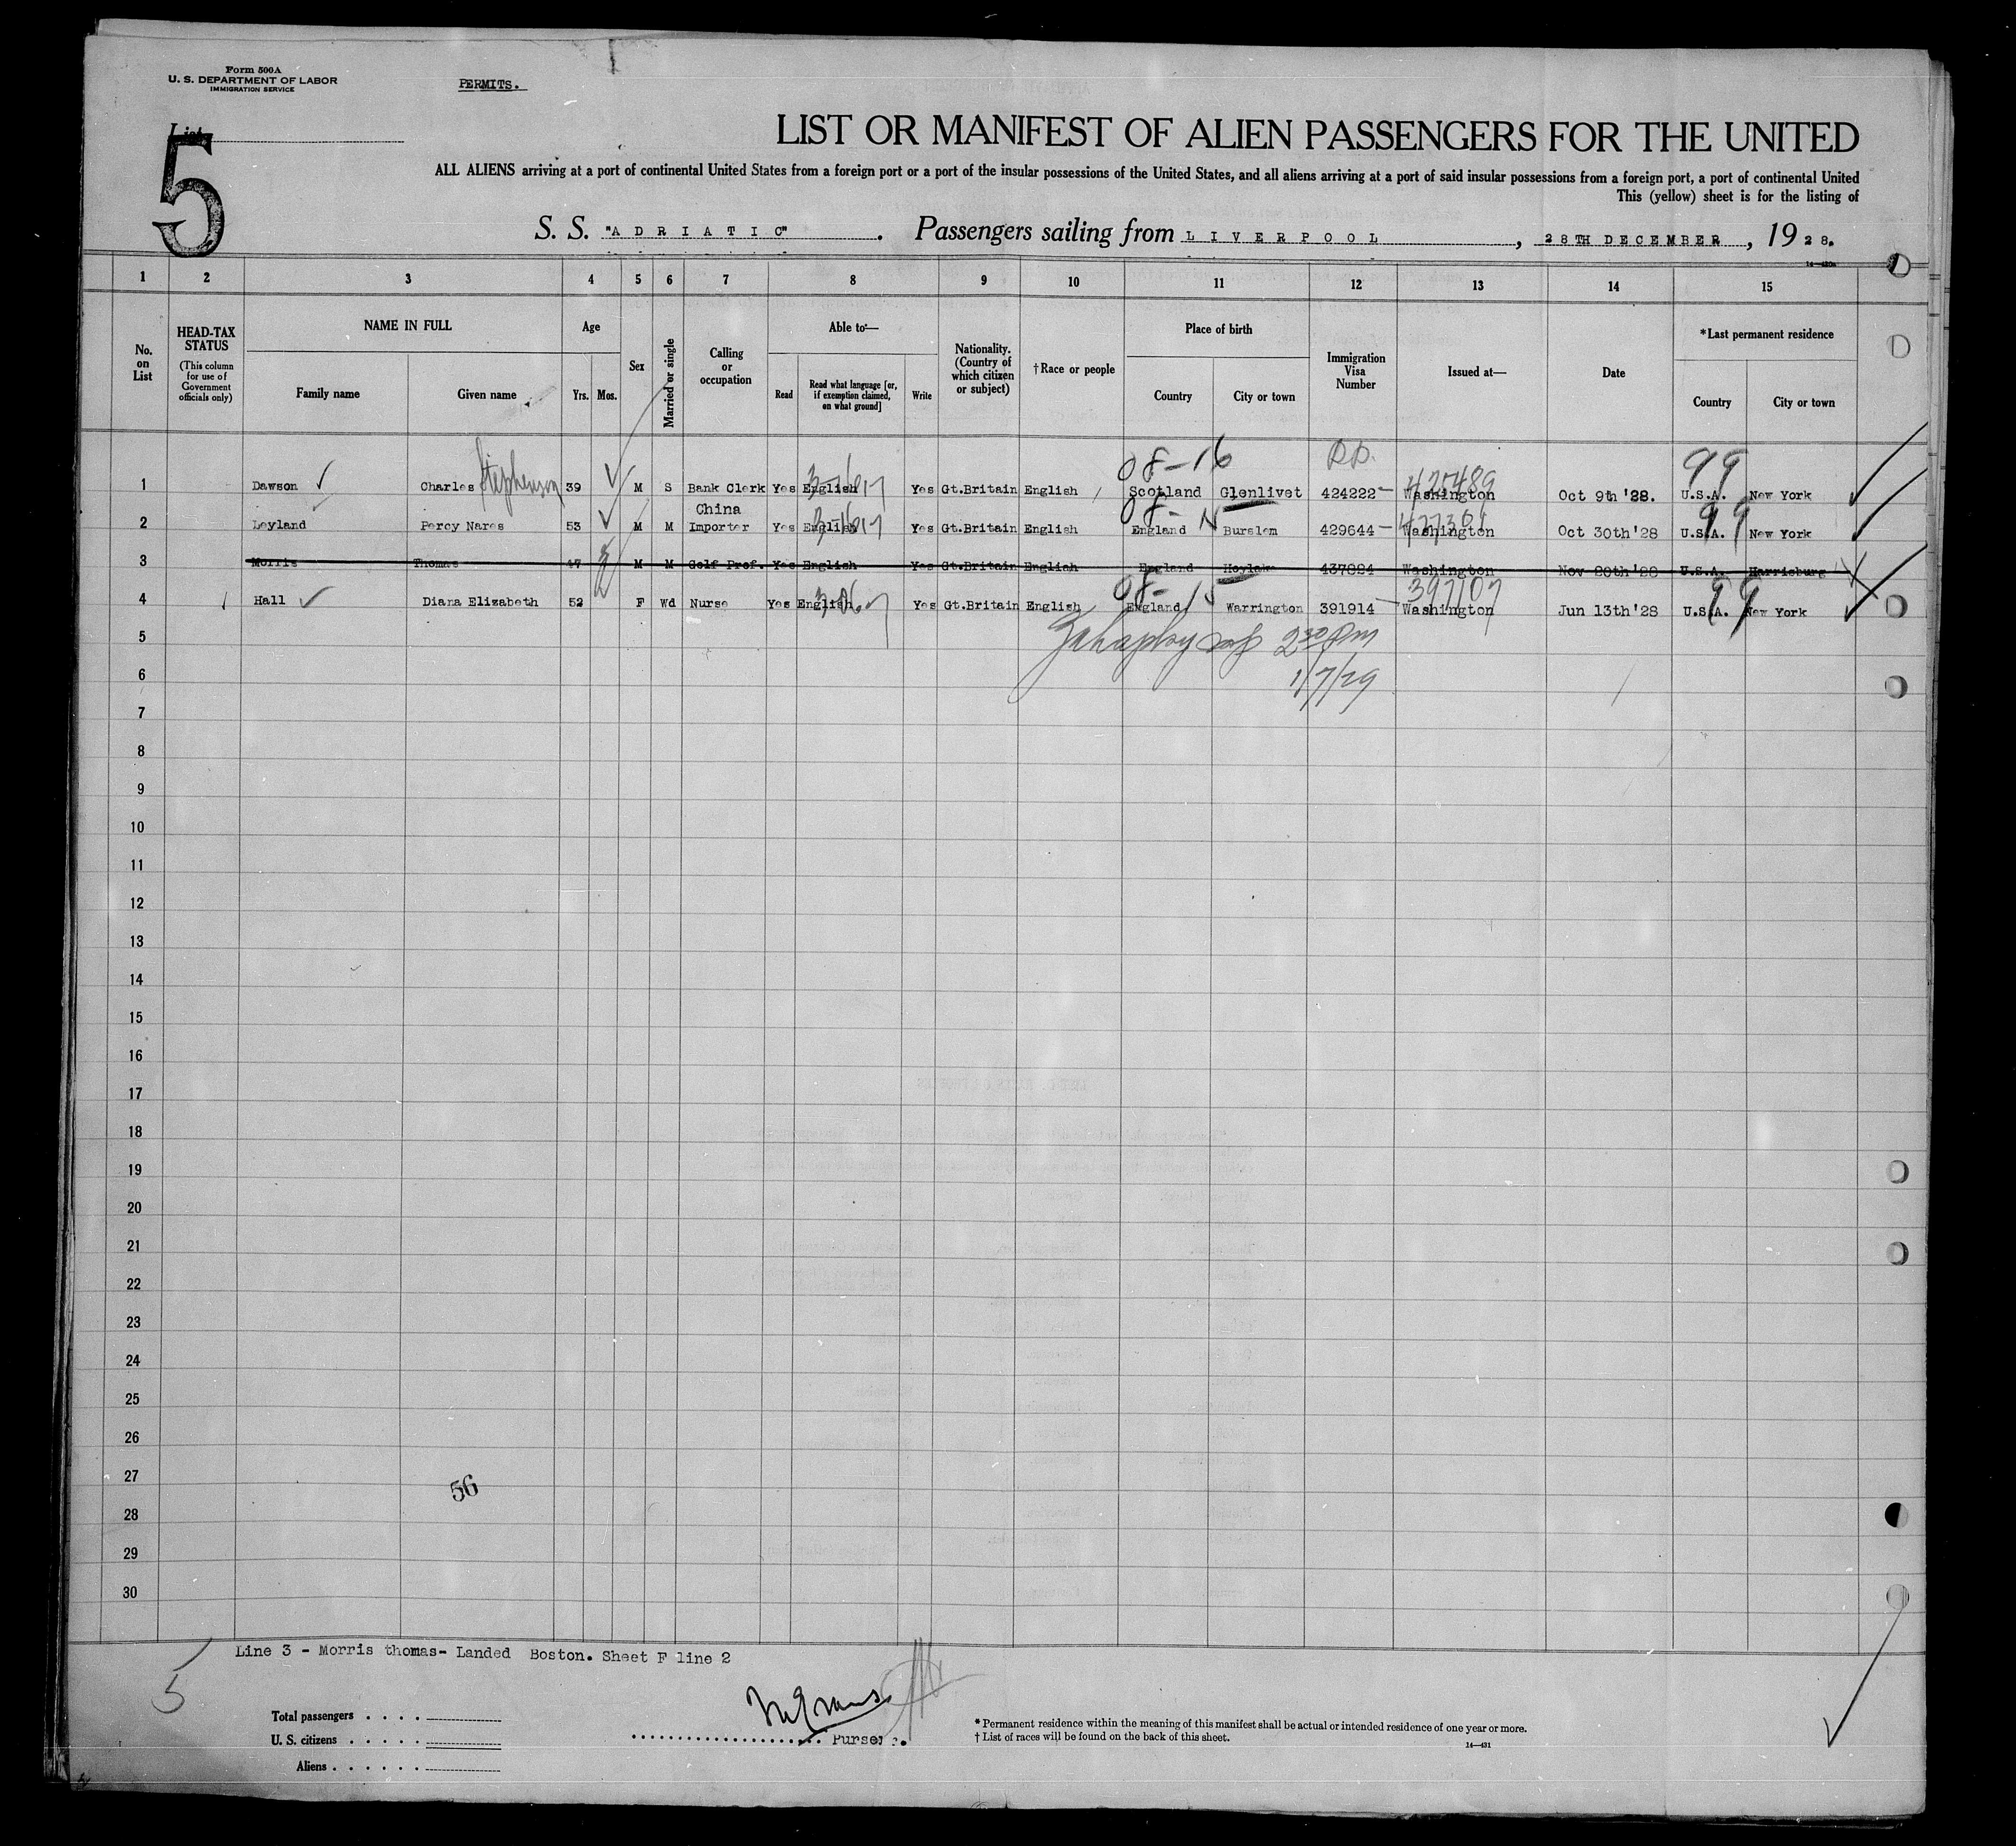 Form 500A
U. S. DEPARTMENT OF LABOR
IMMIGRATION SERVICE
PERMITS.
List
5
LIST OR MANIFEST OF ALIEN PASSENGERS FOR THE UNITED
ALL ALIENS arriving at a port of continental United States from a foreign port or a port of the insular possessions of the United States, and all aliens arriving at a port of said insular possessions from a foreign port, a port of continental United
This (yellow) sheet is for the listing of
S. S. "ADRIATIC". Passengers sailing from LIVERPOOL, 28TH DECEMBER, 1928.
1 2 3 4 5 6 7 8 9 10 11 12 13 14 15
No. on List
HEAD-TAX STATUS
(This column for use of Government officials only)
NAME IN FULL
Family name Given name
Age
Yrs. Mos.
Sex
Married or single
Calling or occupation
Able to—
Read Read what language [or, if exemption claimed, on what ground] Write
Nationality. (Country of which citizen or subject)
†Race or people
Place of birth
Country City or town
Immigration Visa Number
Issued at—
Date
*Last permanent residence
Country City or town
08-16 99
1 Dawson Charles Stephenson 39 M S Bank Clerk Yes English Yes Gt.Britain English Scotland Glenlivet 424222 425489 Washington Oct 9th '28. U.S.A. New York
2 Leyland Percy Nares 53 M M China Importer Yes English Yes Gt.Britain English England Burslem 429644 Washington Oct 30th '28 U.S.A. New York
3 Morris Thomas 47 M M Golf Prof. Yes English Yes Gt.Britain English England Hoylake 437824 Washington Nov 20th '28 U.S.A. Harrisburg
4 Hall Diana Elizabeth 52 F Wd Nurse Yes English Yes Gt.Britain English England Warrington 391914 397107 Washington Jun 13th '28 U.S.A. New York
5
2 30 Pm
6
1/7/29
7
8
9
10
11
12
13
14
15
16
17
18
19
20
21
22
23
24
25
26
27
56
28
29
30
Line 3 - Morris thomas- Landed Boston. Sheet F line 2
5
Total passengers
U. S. citizens
Aliens
Purser.
* Permanent residence within the meaning of this manifest shall be actual or intended residence of one year or more.
† List of races will be found on the back of this sheet.
14—431